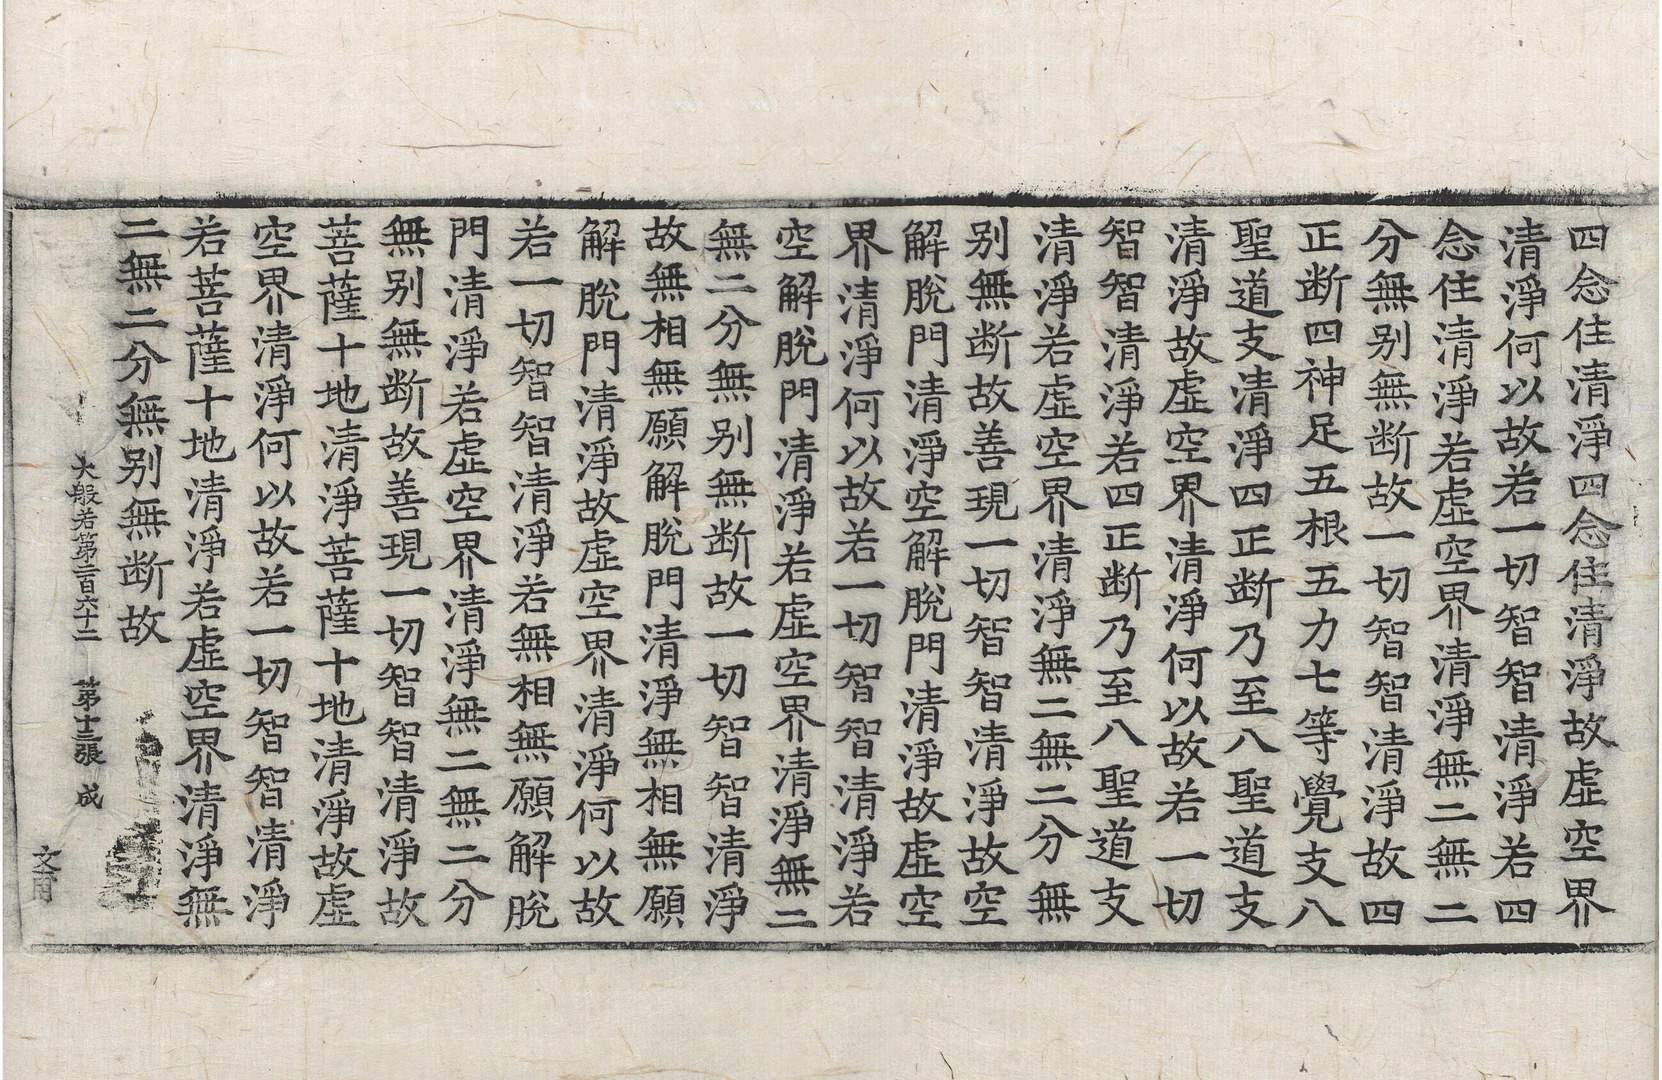 四念住清淨四念住清淨故虛空界
清淨何以故若一切智智清淨若四
念住清淨若虛空界清淨無二無二
分無别無断故一切智智清淨故四
正断四神足五根五力七等覺支八
聖道支清淨四正断乃至八聖道支
清淨故虛空界清淨何以故若一切
智智清淨若四正断乃至八聖道支
清淨若虛空界清淨無二無二分無
别無断故善現一切智智清淨故空
解脫門清淨空解脫門清淨故虛空
界清淨何以故若一切智智清淨若
空解脫門清淨若虛空界清淨無二
無二分無别無断故一切智智清淨
故無相無願解脫門清淨無相無願
解脫門清淨故虛空界清淨何以故
若一切智智清淨若無相無願解脫
門清淨若虛空界清淨無二無二分
無别無断故善現一切智智清淨故
菩薩十地清淨菩薩十地清淨故虛
空界清淨何以故若一切智智清淨
若菩薩十地清淨若虛空界清淨無
二無二分無别無断故
大般若第二百六十二 第十三張 成
文